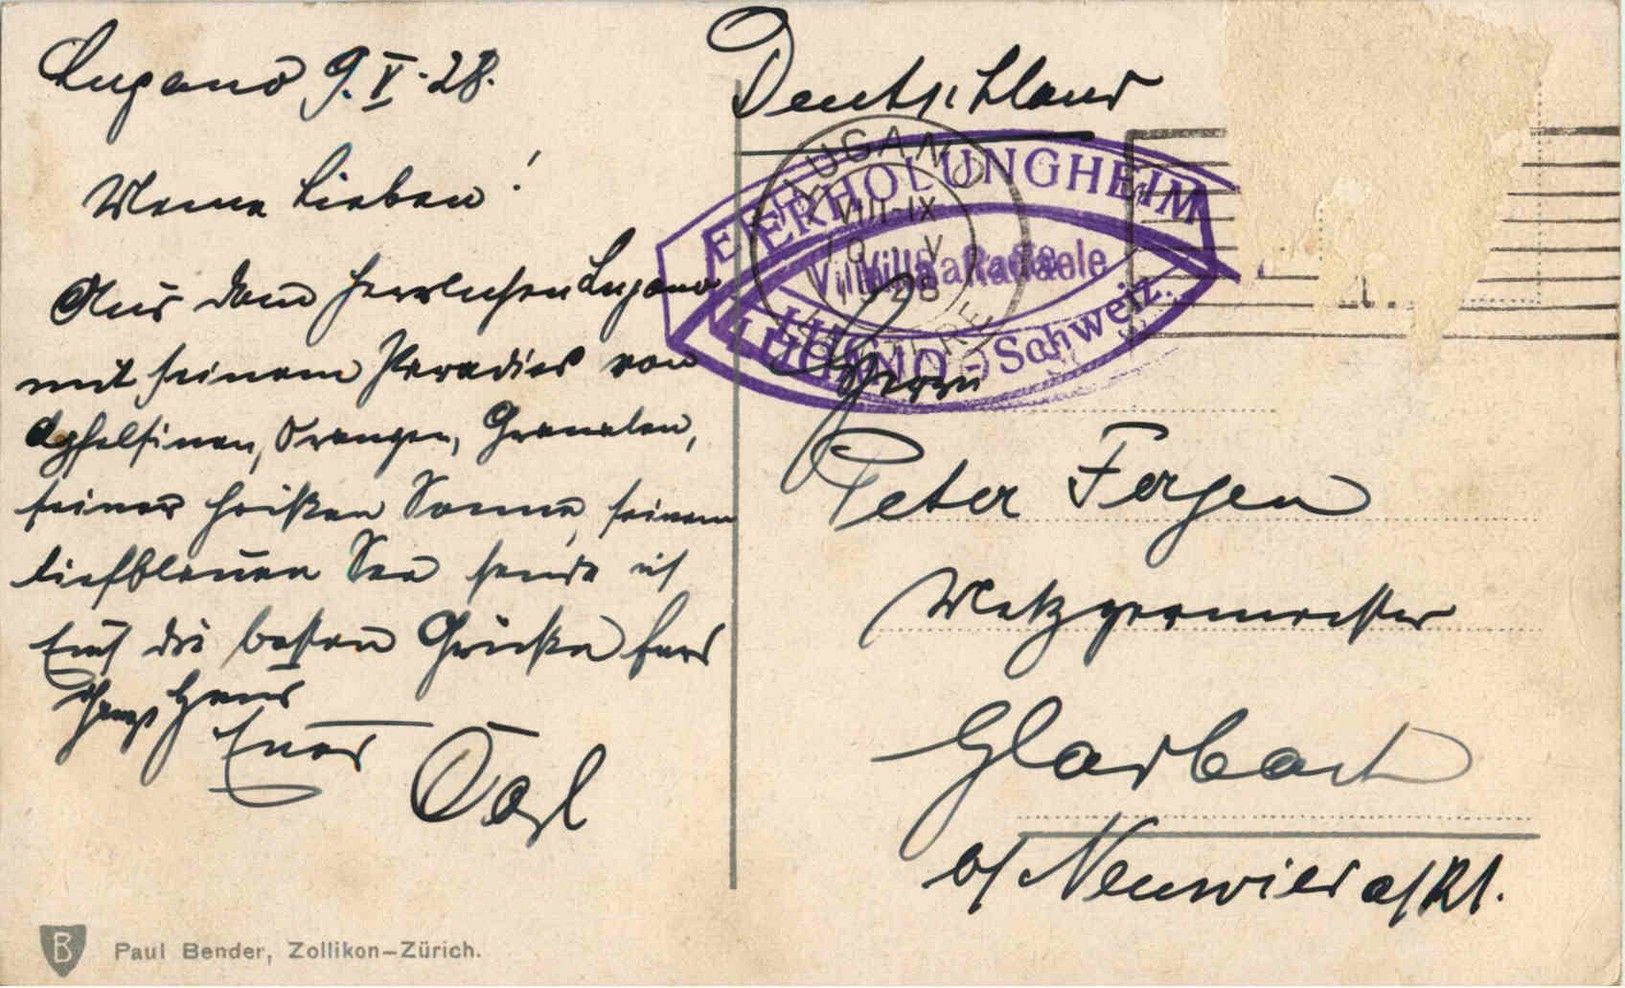 Lugano 9.V.28.
Meine Lieben!
Aus dem herrlichen Lugano
mit seinem Paradies von
Apfelsinen, Orangen, Granaten,
seiner heißen Sonne, seinem
tiefblauen See sende ich
Euch die besten Grüße fürs
ganze Haus
Euer
Paul Bender, Zollikon-Zürich.
B
Deutschland
LUGANO
VIII-IX
10 V
28
ERHOLUNGHEIM
Villa Raffaele
LUGANO - Schweiz.
Herrn
Peter Fergen
Metzgermeister
Gladbach
b/ Neuwied a/Rh.